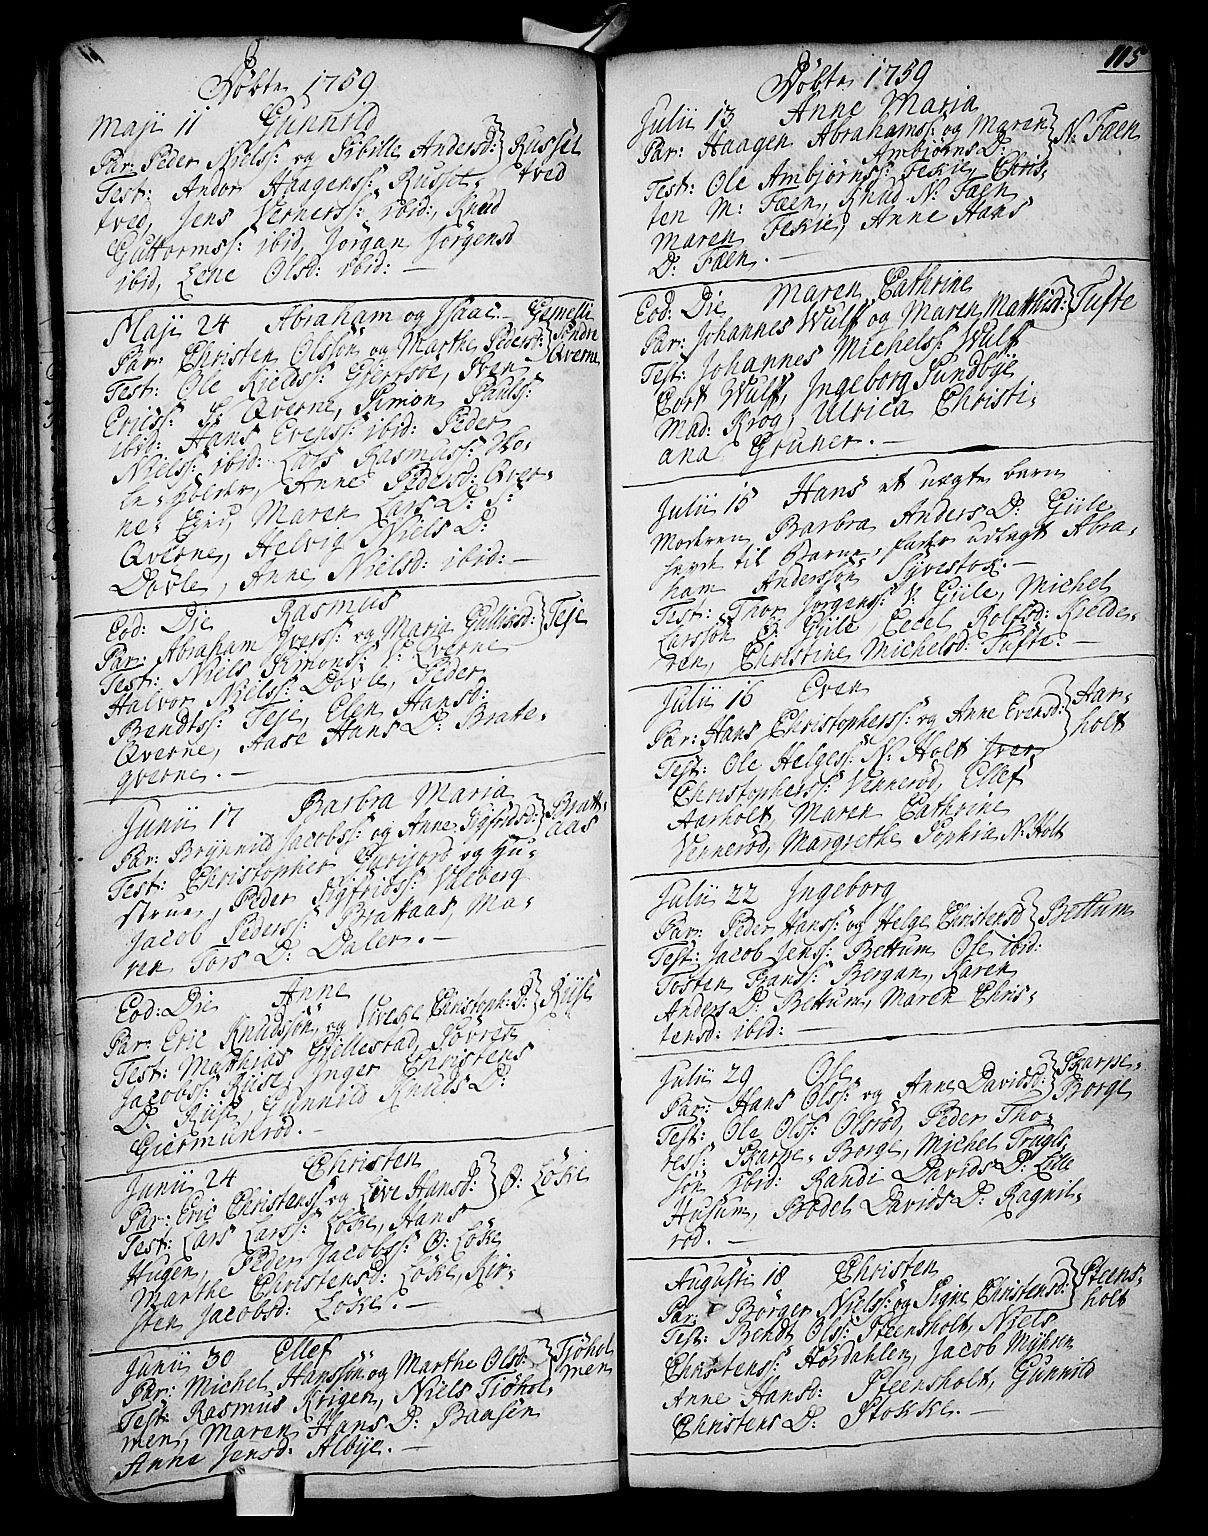 Döbte 1759
Maji 11 Gunnild
Par: Peder Nielss: og Sibille Andersd: Russel
Test: Andor Haagenss: Russel- tved
tved, Jens Vernerss: ibid:, Knud
Guttormss: ibid, Jörgan Jörgensd
ibid, Lene Olsd: ibid: —
Maji 24 Abraham og Isaac — Gemelli
Par: Christen Olssön og Marthe Pedersd: Söndre
Test: Ole Kieldss: Gjertsöe, Sven Qverne
Ericss: S: Qverne, Simon Paulss:
ibid: Hans Evenss: ibid: Peder
Nielss: ibid: Lars Rasmuss:
Anne Pedersd: Qver-
ne- Maren Lars D: S:
Qverne, Helvig Niels D:
Dövle, Anne Nielsd: ibid: —
Eod: Die Rasmus
Par: Abraham Iverss: og Maria Gullisd: Teje
Test: Niels Simons: S: Qverne
Halvor Nielss: Dövle, Peder
Bendtss: Teje, Elen Hansd:
Qverne, Aase Hans D: Brate-
qverne. —
Junii 17 Barbra Maria
Par: Brynnild Jacobss: og Anne Sigfridsd: Bratt-
Test: Christopher og Hu- aas
struen, Peder Sigfridss: Valberg
Jacob Pederss: Brataas, Ma-
ren Tors D: Dalen. —
Eod: Die Anne
Par: Eric Knudssön, og Siveke Christoph: D: Riise
Test: Matthias Gjellestad, Sövren
Jacobss: Riise, Inger Christens
D: Riise, Gunnild Knuds D:
Giermunrod. —
Junii 24 Christen
Par: Eric Christenss: og Live Hansd: Ö: Löke
Test: Lars Larss: Löke, Hans
Hugen, Peder Jacobss: Ö: Löke
Marthe Christensd: Löke, Kir-
sten Jacobsd: Löke. —
Junii 30 Ellef
Par: Michel Hanssön og Marthe Olsd: Tiöhol
Test: Rasmus Kriger, Niels Tiöhol- men
men, Maren Hans D: Baasen
Anne Jensd: Albye. —
115
Döbte 1759
Julii 13 Anne Maria
Par: Haagen Abrahamss: og Maren N: Fæen
Ambiörns D:
Test: Ole Ambjörnss: Fekie, Chris-
ten M: Fæen, Knud N: Fæen
Maren Fekie, Anne Hans
D: Fæen. —
Eod: Die Maren Cathrine
Par: Johannes Wulf og Maren Matthisd: Tufte
Test: Johannes Michelss: Wulf
Cort Wulf, Ingeborg Sundbye
Mad: Krog, Ulrica Christi-
ana Gruner. —
Julii 15 Hans et uægte barn
Moderen Barbra Anders D: Giile
til Barne-fader udlagt Abra-
ham Anderssön Syvestok. —
Test: Thor Jörgenss: S: Giile, Michel
Larssön S: Giile Cecel Rolfsd: Kielde-
ren, Christine Michelsd: Tufte. —
Julii 16 Even
Par: Hans Christopherss: og Anne Evensd: Aar-
Test: Ole Helgess: N: Holt Iver holt
Christopherss: Venneröd, Ellef
Aarholt, Maren Cathrine
Venneröd, Margrethe Sophia N: Holt
Julii 22 Ingeborg
Par: Peder Hanss: og Helge Christensd: Bettum
Test: Jacob Jenss: Bettum Ose ibid:
Tosten Hanss: Bergan, Karen
Anders D: Bettum, Maren Chris-
tensd: ibid: —
Julii 29 Ose
Par: Hans Olss: og Anne Davidsd: Skarpe-
Test: Ole Olss: Olsröd, Peder Tho- Borge
ress: Skarpe-Borge, Michel Truls-
sön ibid: Randi Davids D: Lille
Husum, Bodel Davids D: Ragnil-
rod. —
Augusti 18 Christen
Par: Börger Nielss: og Signe Christensd: Steens-
Test: Bendt Olss: Steensholt, Niels holt
Christenss: Hördahlen, Jacob Myhren
Anne Hansd: Steensholt, Gunnild
Christens D: Stokke. —